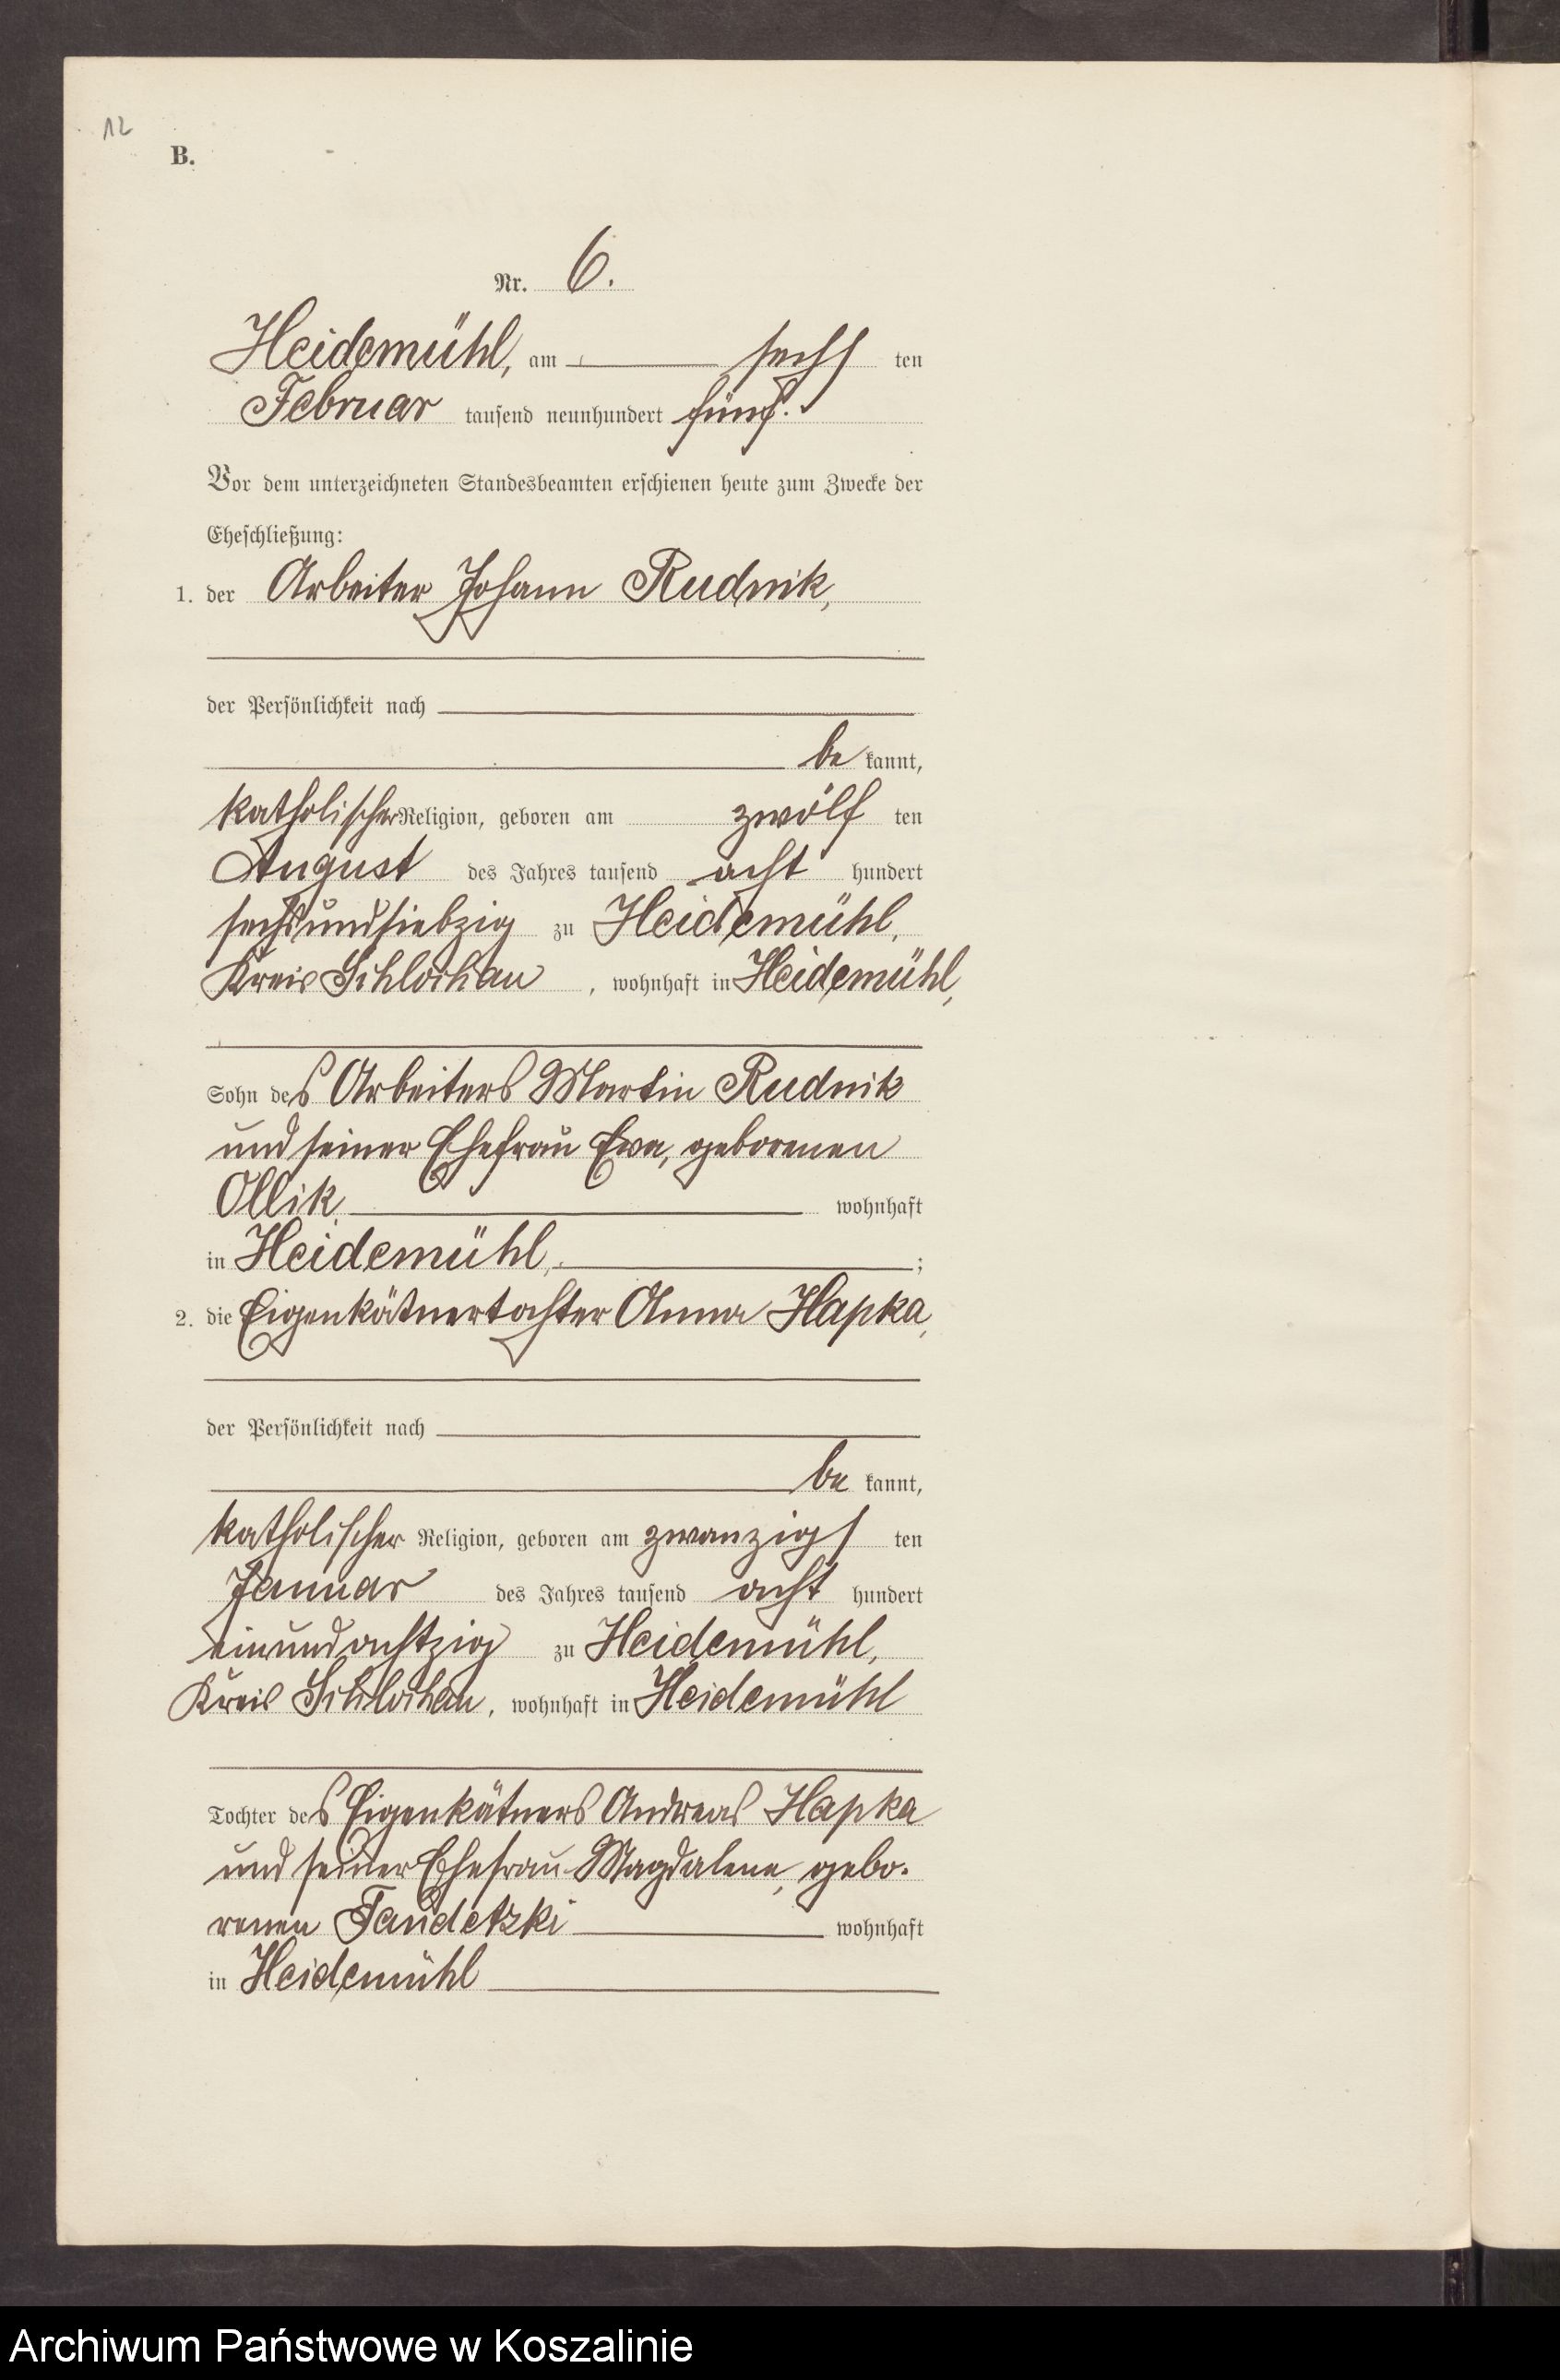 12
B.
Nr. 6.
Heidemühl, am sechs ten
Februar tausend neunhundert fünf.
Vor dem unterzeichneten Standesbeamten erschienen heute zum Zwecke der
Eheschließung:
1. der Arbeiter Johann Rudnik,
der Persönlichkeit nach
be kannt,
katholischer Religion, geboren am zwölf ten
August des Jahres tausend acht hundert
sechsundsiebzig zu Heidemühl,
Kreis Schlochau, wohnhaft in Heidemühl,
Sohn des Arbeiters Martin Rudnik
und seiner Ehefrau Eva, geborenen
Ollik wohnhaft
in Heidemühl, ;
2. die Eigenkätnertochter Anna Hapka,
der Persönlichkeit nach
be kannt,
katholischer Religion, geboren am zwanzigs ten
Januar des Jahres tausend acht hundert
einundachtzig zu Heidemühl,
Kreis Schlochau, wohnhaft in Heidemühl
Tochter des Eigenkätners Andreas Hapka
und seiner Ehefrau Magdalena, gebo-
renen Tandetzki wohnhaft
in Heidemühl
Archiwum Państwowe w Koszalinie